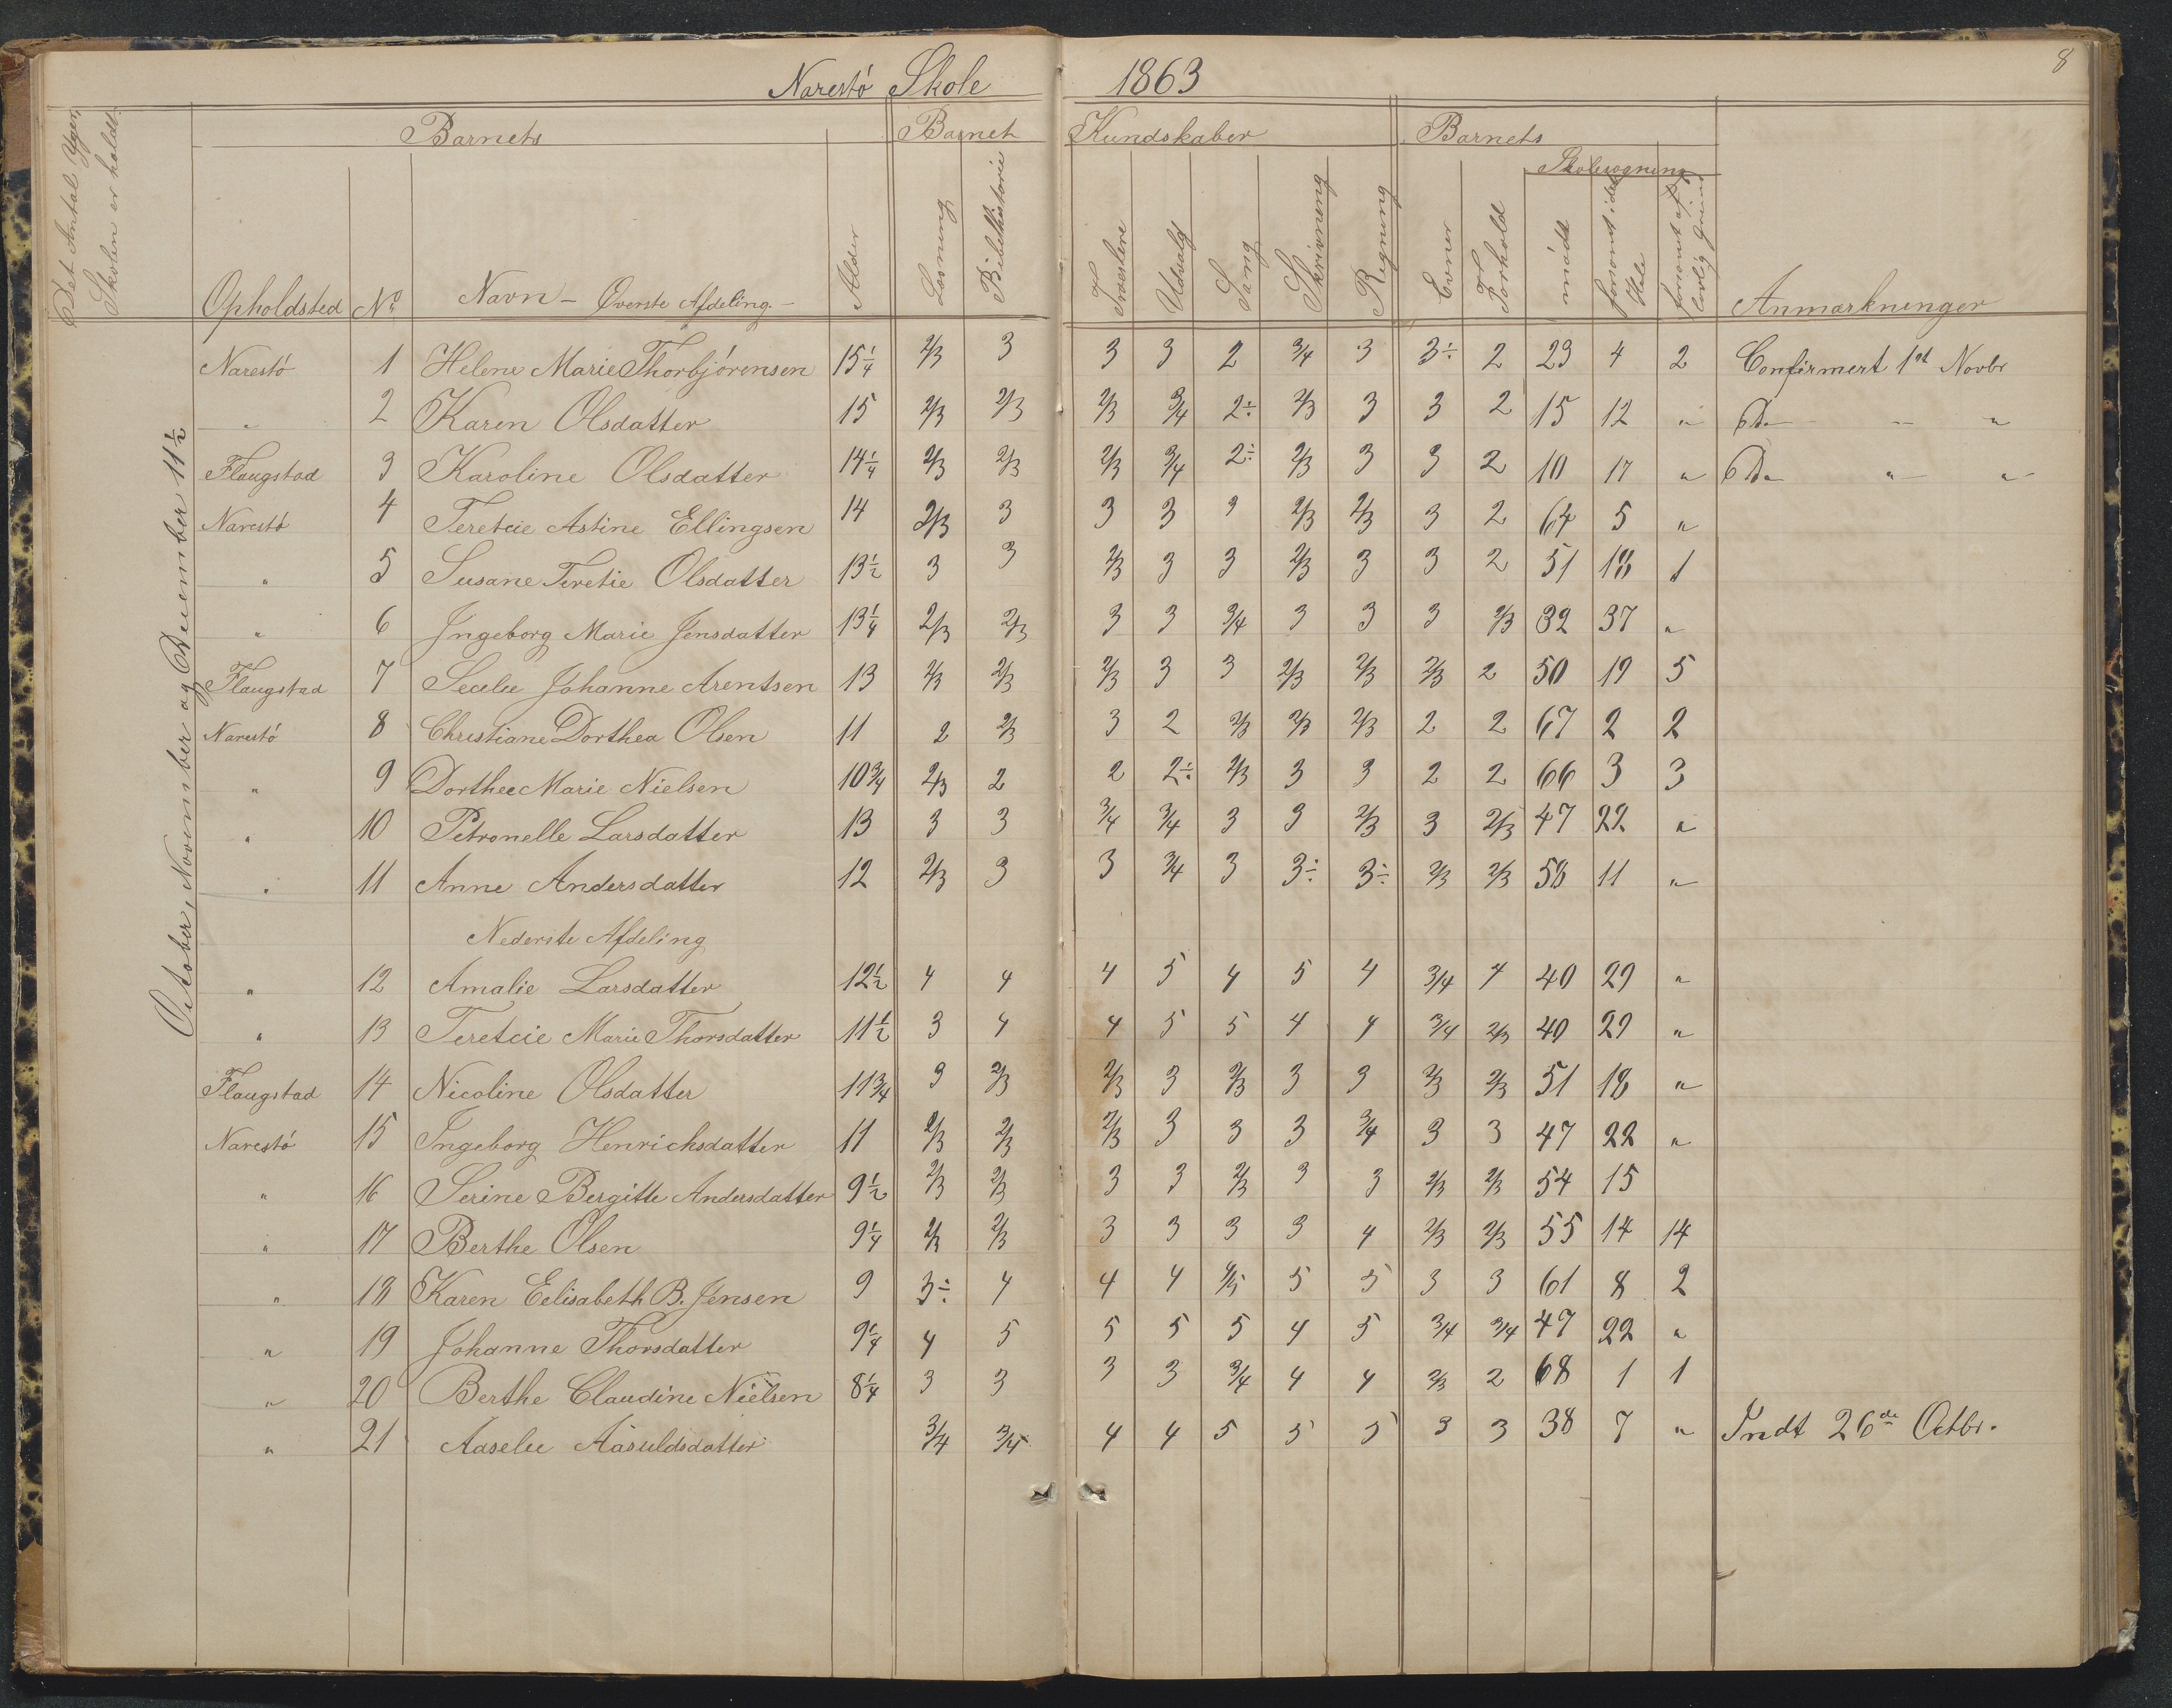 8
Narestø Skole 1863
Det Antal Uger Skolen er holdt.
Barnets Barnets Kundskaber Barnets
Skolesøgning
Opholdsted No Navn – Øverste Afdeling. – Alder Læsning Bibelhistorie Troeslære Udvalg Sang Skrivning Regning Evner Forhold mødt forsømt i det Hele forsømt af lovlig Grund Anmærkninger
October, November og December 11½
Narestø 1 Helene Marie Thorbjørensen 15¼ 2/3 3 3 3 2 3/4 3 3÷ 2 23 4 2 Confirmert 1st Novbr
" 2 Karen Olsdatter 15 2/3 2/3 2/3 3/4 2÷ 2/3 3 3 2 15 12 " Do – "
Flaugstad 3 Karoline Olsdatter 14¼ 2/3 2/3 2/3 3/4 2÷ 2/3 3 3 2 10 17 " Do " "
Narestø 4 Teretcie Astine Ellingsen 14 2/3 3 3 3 3 2/3 2/3 3 2 64 5 "
" 5 Susane Teretie Olsdatter 13½ 3 3 2/3 3 3 2/3 3 3 2 51 18 1
" 6 Ingeborg Marie Jensdatter 13¼ 2/3 2/3 3 3 3/4 3 3 3 2/3 32 37 "
Flaugstad 7 Secelie Johanne Arentsen 13 2/3 2/3 2/3 3 3 2/3 2/3 2/3 2 50 19 5
Narestø 8 Christiane Dorthea Olsen 11 2 2/3 3 2 2/3 2/3 2/3 2 2 67 2 2
" 9 Dorthee Marie Nielsen 10¾ 2/3 2 2 2÷ 2/3 3 3 2 2 66 3 3
" 10 Petronelle Larsdatter 13 3 3 3/4 3/4 3 3 2/3 3 2/3 47 22 "
" 11 Anne Andersdatter 12 2/3 3 3 3/4 3 3÷ 3÷ 2/3 2/3 58 11 "
Nederste Afdeling
" 12 Amalie Larsdatter 12½ 4 4 4 5 4 5 4 3/4 4 40 29 "
" 13 Teretcie Marie Thorsdatter 11½ 3 4 4 5 5 4 4 3/4 2/3 40 29 "
Flaugstad 14 Nicoline Olsdatter 11¾ 3 2/3 2/3 3 2/3 3 3 2/3 2/3 51 18 "
Narestø 15 Ingeborg Henrichsdatter 11 2/3 2/3 2/3 3 3 3 3/4 3 3 47 22 "
" 16 Serine Bergitte Andersdatter 9½ 2/3 2/3 3 3 2/3 3 3 2/3 2/3 54 15
" 17 Berthe Olsen 9¼ 2/3 2/3 3 3 3 3 4 2/3 2/3 55 14 14
" 18 Karen Eelisabeth B. Jensen 9 3÷ 4 4 4 4/5 5 5 3 3 61 8 2
" 19 Johanne Thorsdatter 9¼ 4 5 5 5 5 4 5 3/4 3/4 47 22 "
" 20 Berthe Claudine Nielsen 8¼ 3 3 3 3 3/4 4 4 2/3 2 68 1 1
" 21 Aaselie Aasuldsdatter 3/4 3/4 4 4 5 5 5 3 3 38 7 " Indt 26de Octbr.